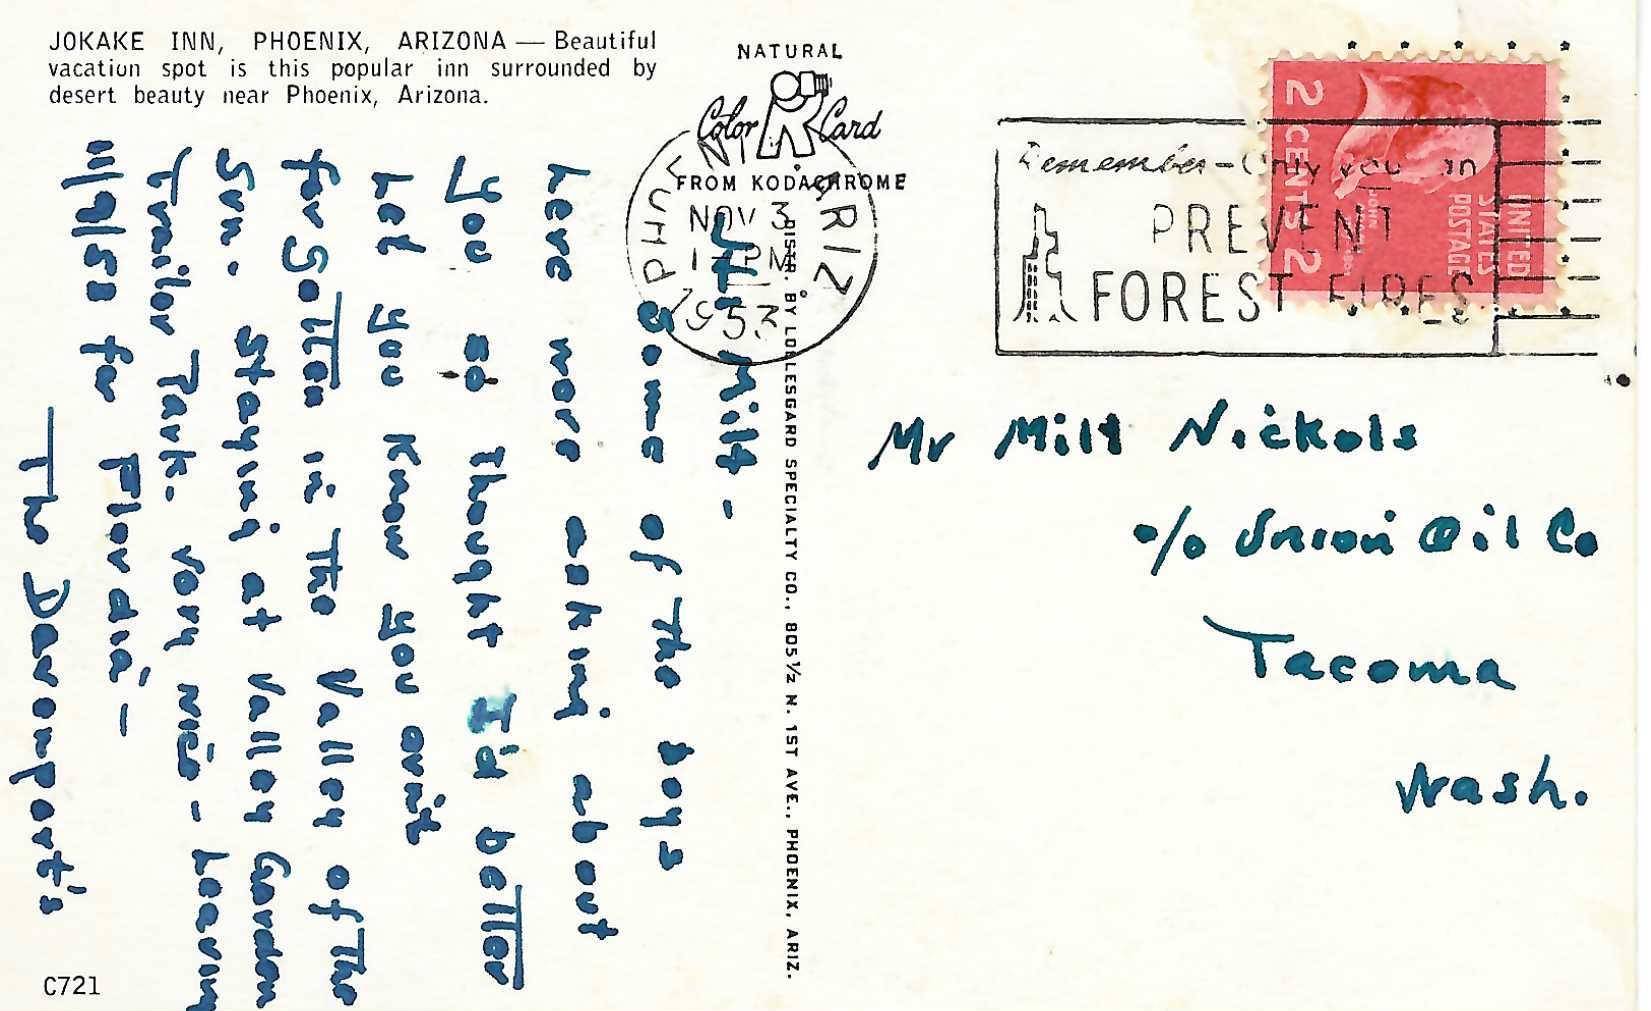 JOKAKE INN, PHOENIX, ARIZONA — Beautiful
vacation spot is this popular inn surrounded by
desert beauty near Phoenix, Arizona.
NATURAL
Color R Card
FROM KODACHROME
NOV 3
PM
1953
ARIZ
Remember - Only you can
PREVENT
FOREST FIRES
2 CENTS 2
UNITED
STATES
POSTAGE
Hi Milt -
Some of The boys
here more asking about
you so Thought I'd better
Let you Know you arn't
forgotten in The Valley of The
Sun. Staying at Valley Garden
Trailer Park. Very nice - Leaving
11/9/53 for Florida -
The Davenport's
DISTR. BY LOLLESGARD SPECIALTY CO., 805½ N. 1ST AVE., PHOENIX, ARIZ.
Mr Milt Nickols
c/o Union Oil Co
Tacoma
Wash.
C721